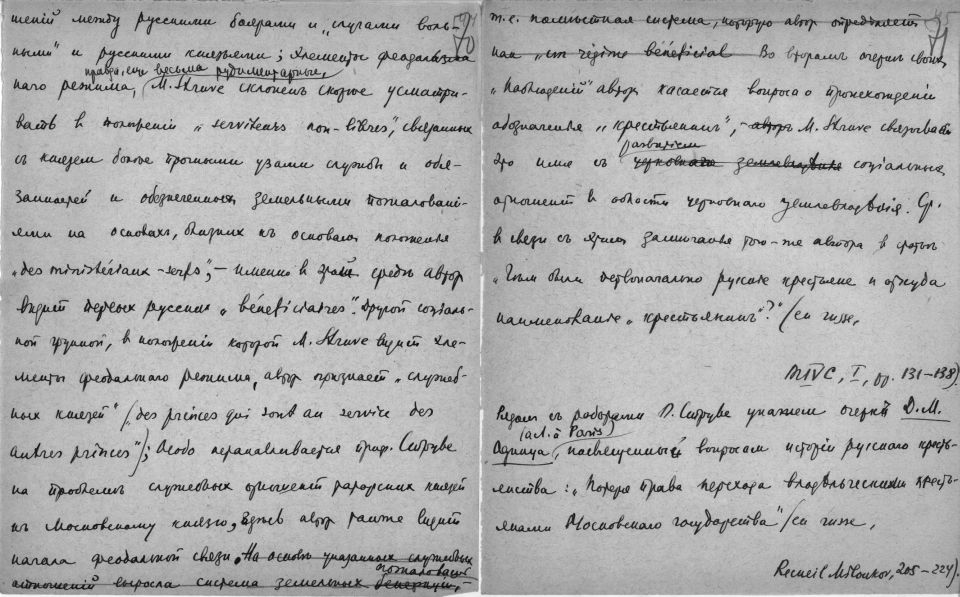 шеній между русскими боярами и „слугами воль-
ными" и русскими князьями; элементы феодаль
правда, еще весьма рудиментарные,
наго режима, M. Struve склоненъ скорѣе усматри-
вать в положеніи „serviteurs non-libres", связанных
съ княземъ болѣе прочными узами службы и обя-
занностей и обезпеченных земельными пожаловані-
ями на основахъ, близких къ основамъ положенія
„des ministériaux-serfs", – именно в этой средѣ автор
видит первых русских „bénéficiaires". Другой соціаль-
ной группой, в положеніи которой M. Struve видит эле-
менты феодальнаго режима, автор признает „служеб-
ных князей" („des princes qui sont au service des
autres princes"); особо останавливается проф. Струве
на проблемѣ служебных отношеній князей
къ Московскому князю, гдѣ автор также видит
начала феодальной связи. На основѣ указанных служебных
пожалованій
отношеній выросла система земельных бенефицій,
70
71
т.е. помѣстная система, которую автор опредѣляет
как „un régime bénéficial Во втором очеркѣ своих
„Наблюденій" автор касается вопроса о происхожденіи
обозначенія „крестьянинъ", – авторъ M. Struve связывает
развитіем
это имя съ церковнаго землевладѣнія соціальных
отношеній в области церковнаго землевладѣнія. Ср.
в связи съ этим замѣчанія того-же автора в статьѣ
„Чѣм были первоначально русскіе крестьяне и откуда
наименованіе „крестьянинъ"? (см. ниже,
I, pp. 131–138).
Рядом съ работами П. Струве укажем очерк Д. М.
(act. à Paris)
Одинца, посвященный вопросам исторіи русскаго кресть-
янства: „Потеря права перехода владѣльческими кресть-
янами Московскаго государства" (см. ниже,
Recueil Miloukov, 205–224).